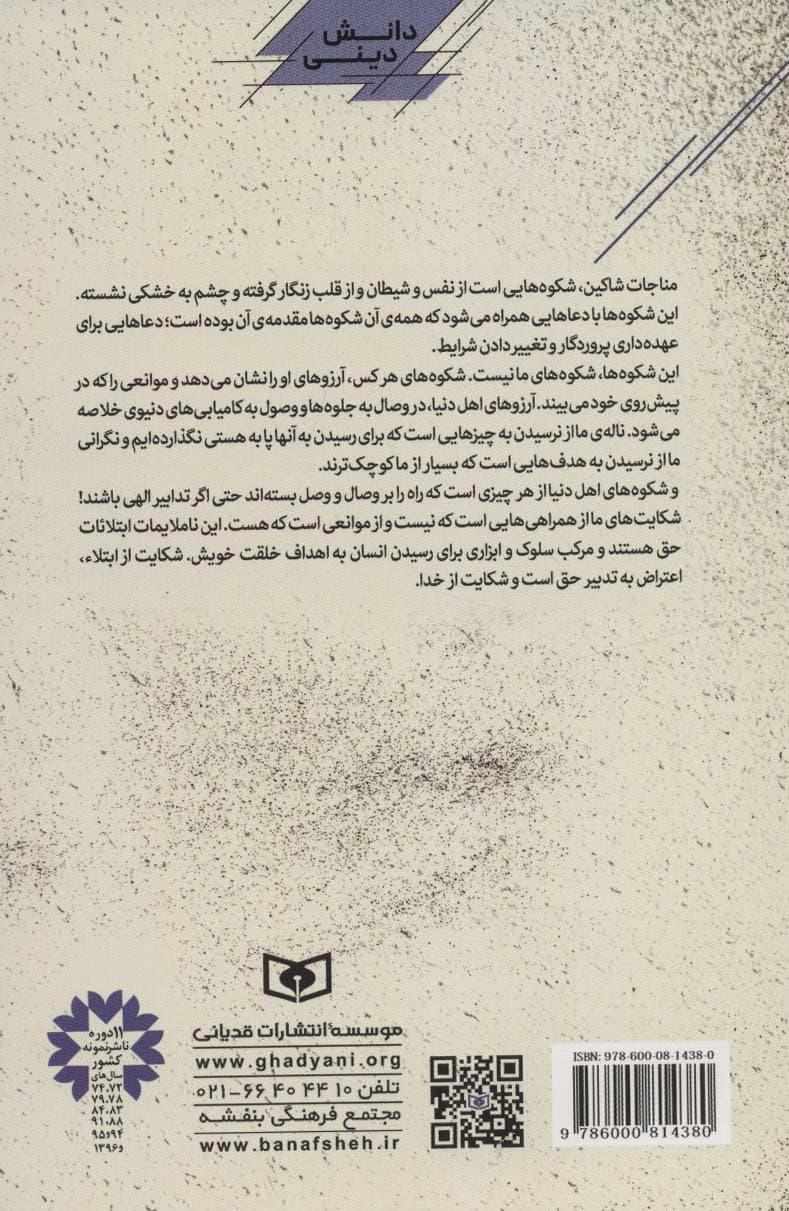 دانش
دینی
مناجات شاکین، شکوه‌هایی است از نفس و شیطان و از قلب زنگار گرفته و چشم به خشکی نشسته.
این شکوه‌ها با دعاهایی همراه می‌شود که همه‌ی آن شکوه‌ها مقدمه‌ی آن بوده است؛ دعاهایی برای
عهده‌داری پروردگار و تغییر دادن شرایط.
این شکوه‌ها، شکوه‌های ما نیست. شکوه‌های هر کس، آرزوهای او را نشان می‌دهد و موانعی را که در
پیش روی خود می‌بیند. آرزوهای اهل دنیا، در وصال به جلوه‌ها و وصول به کامیابی‌های دنیوی خلاصه
می‌شود. ناله‌ی ما از نرسیدن به چیزهایی است که برای رسیدن به آنها پا به هستی نگذارده‌ایم و نگرانی
ما از نرسیدن به هدف‌هایی است که بسیار از ما کوچک‌ترند.
و شکوه‌های اهل دنیا از هر چیزی است که راه را بر وصال و وصل بسته‌اند حتی اگر تدابیر الهی باشند!
شکایت‌های ما از همراهی‌هایی است که نیست و از موانعی است که هست. این ناملایمات ابتلائات
حق هستند و مرکب سلوک و ابزاری برای رسیدن انسان به اهداف خلقت خویش. شکایت از ابتلاء،
اعتراض به تدبیر حق است و شکایت از خدا.
موسسهٔ انتشارات قدیانی
www.ghadyani.org
تلفن ۱۰ ۴۴ ۴۰ ۶۶-۰۲۱
مجتمع فرهنگی بنفشه
www.banafsheh.ir
۱۱ دوره
ناشر نمونه
کشور
سال‌های
۷۴،۷۲
۷۹،۷۸
۸۴،۸۳
۹۱،۸۸
۹۴و۹۵
و۱۳۹۶
ISBN: 978-600-08-1438-0
9 786000 814380